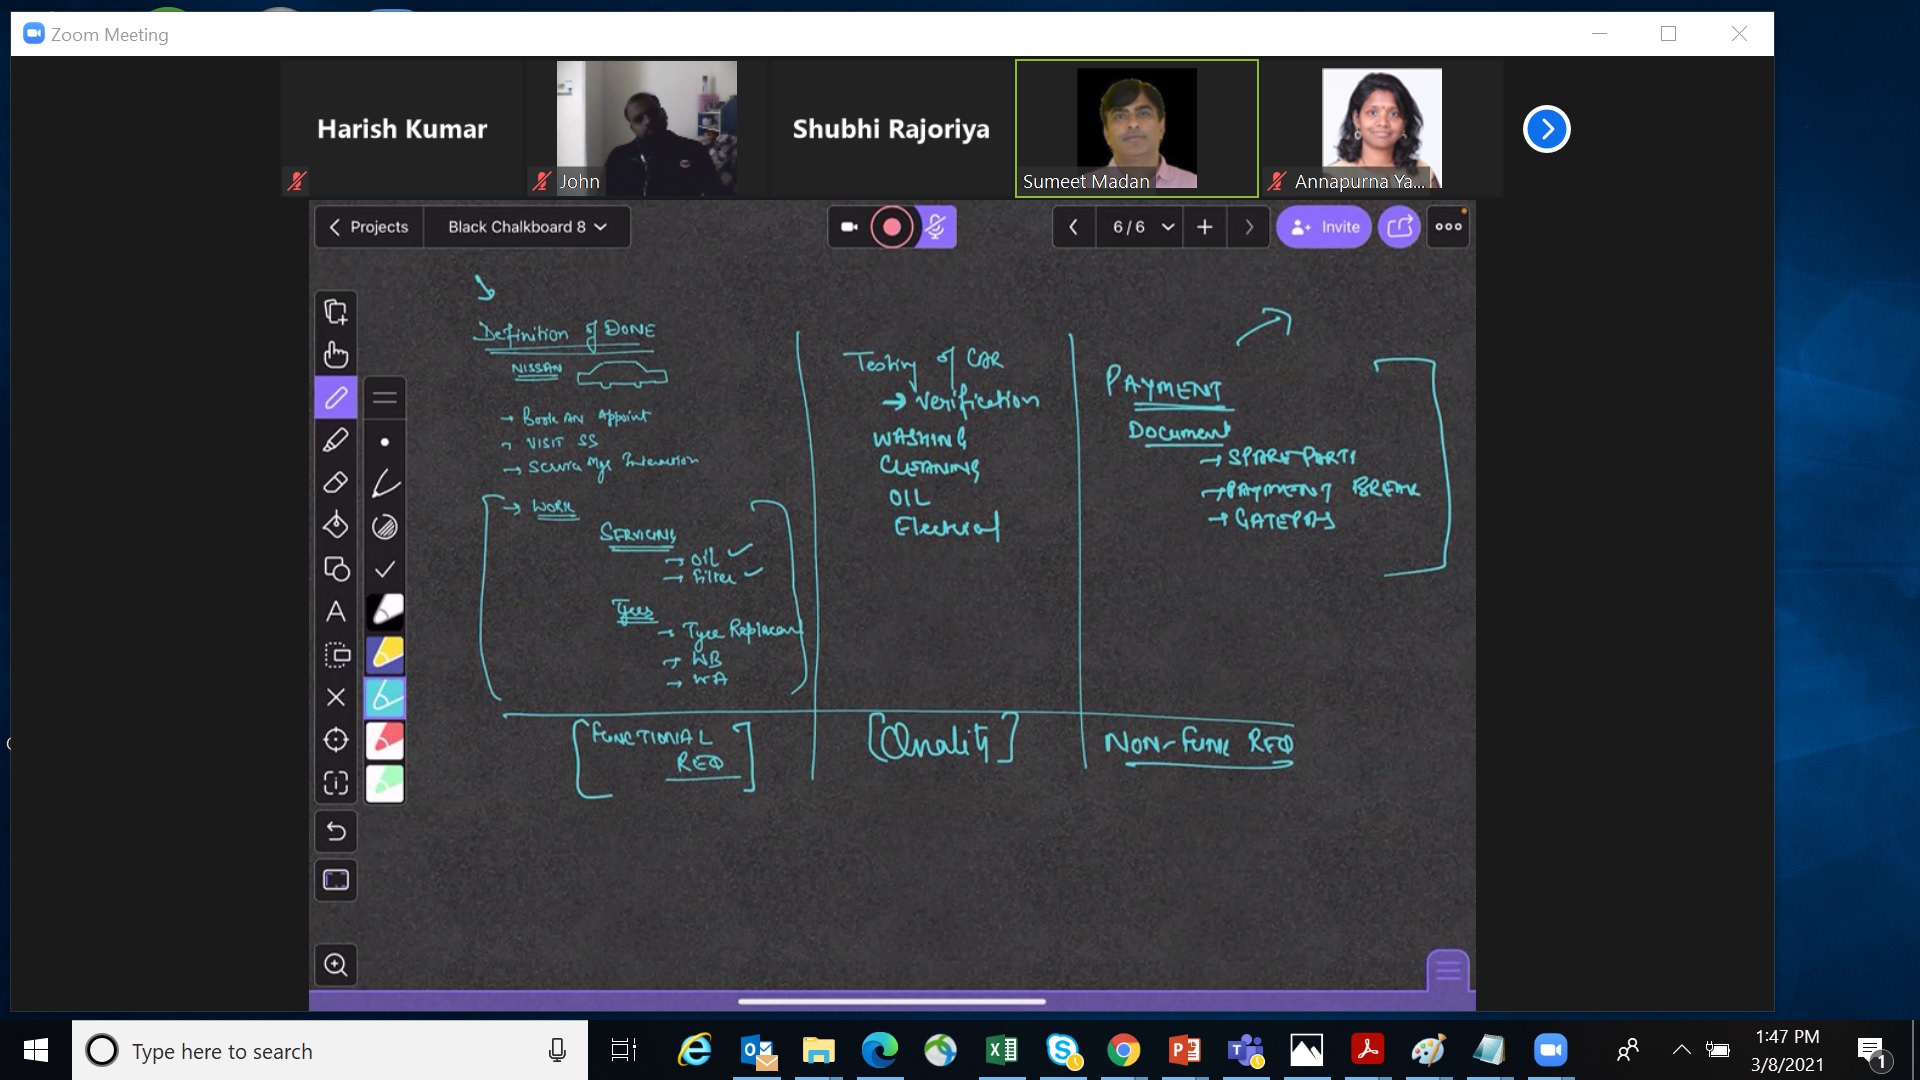 Zoom Meeting
Harish Kumar
John
Shubhi Rajoriya
Sumeet Madan
Annapurna Ya...
Projects
Black Chalkboard 8
6 / 6
Invite
Definition of DONE
NISSAN
→ Book AN Appoint
→ VISIT SS
→ Service Mgr Interaction
→ WORK
SERVICING
→ OIL ✓
→ Filter ✓
Tyres
→ Tyre Replacem
→ WB
→ WA
FUNCTIONAL
REQ
Testing of CAR
→ Verification
WASHING
CLEANING
OIL
Electrical
[Quality]
PAYMENT
Document
→ SPARE PARTS
→ PAYMENT BREAK
→ GATEPAS
NON-FUNC REQ
Type here to search
1:47 PM
3/8/2021
1